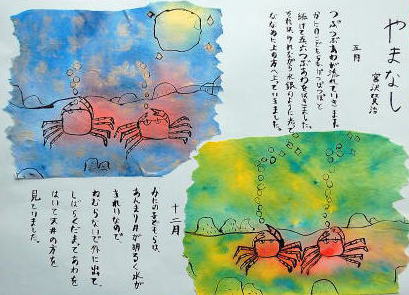 やまなし
宮沢賢治
五月
つぶつぶあわが流れて行きます。
かにの子どもらもぽつぽつぽつと
続けて五六つぶあわをはきました。
それはゆれながら水銀のように光って
ななめに上の方へ上っていきました。
十二月
かにの子どもらは、
あんまり月が明るく水が
きれいなので、
ねむらないで外に出て、
しばらくだまってあわを
はいて天井の方を
見ていました。